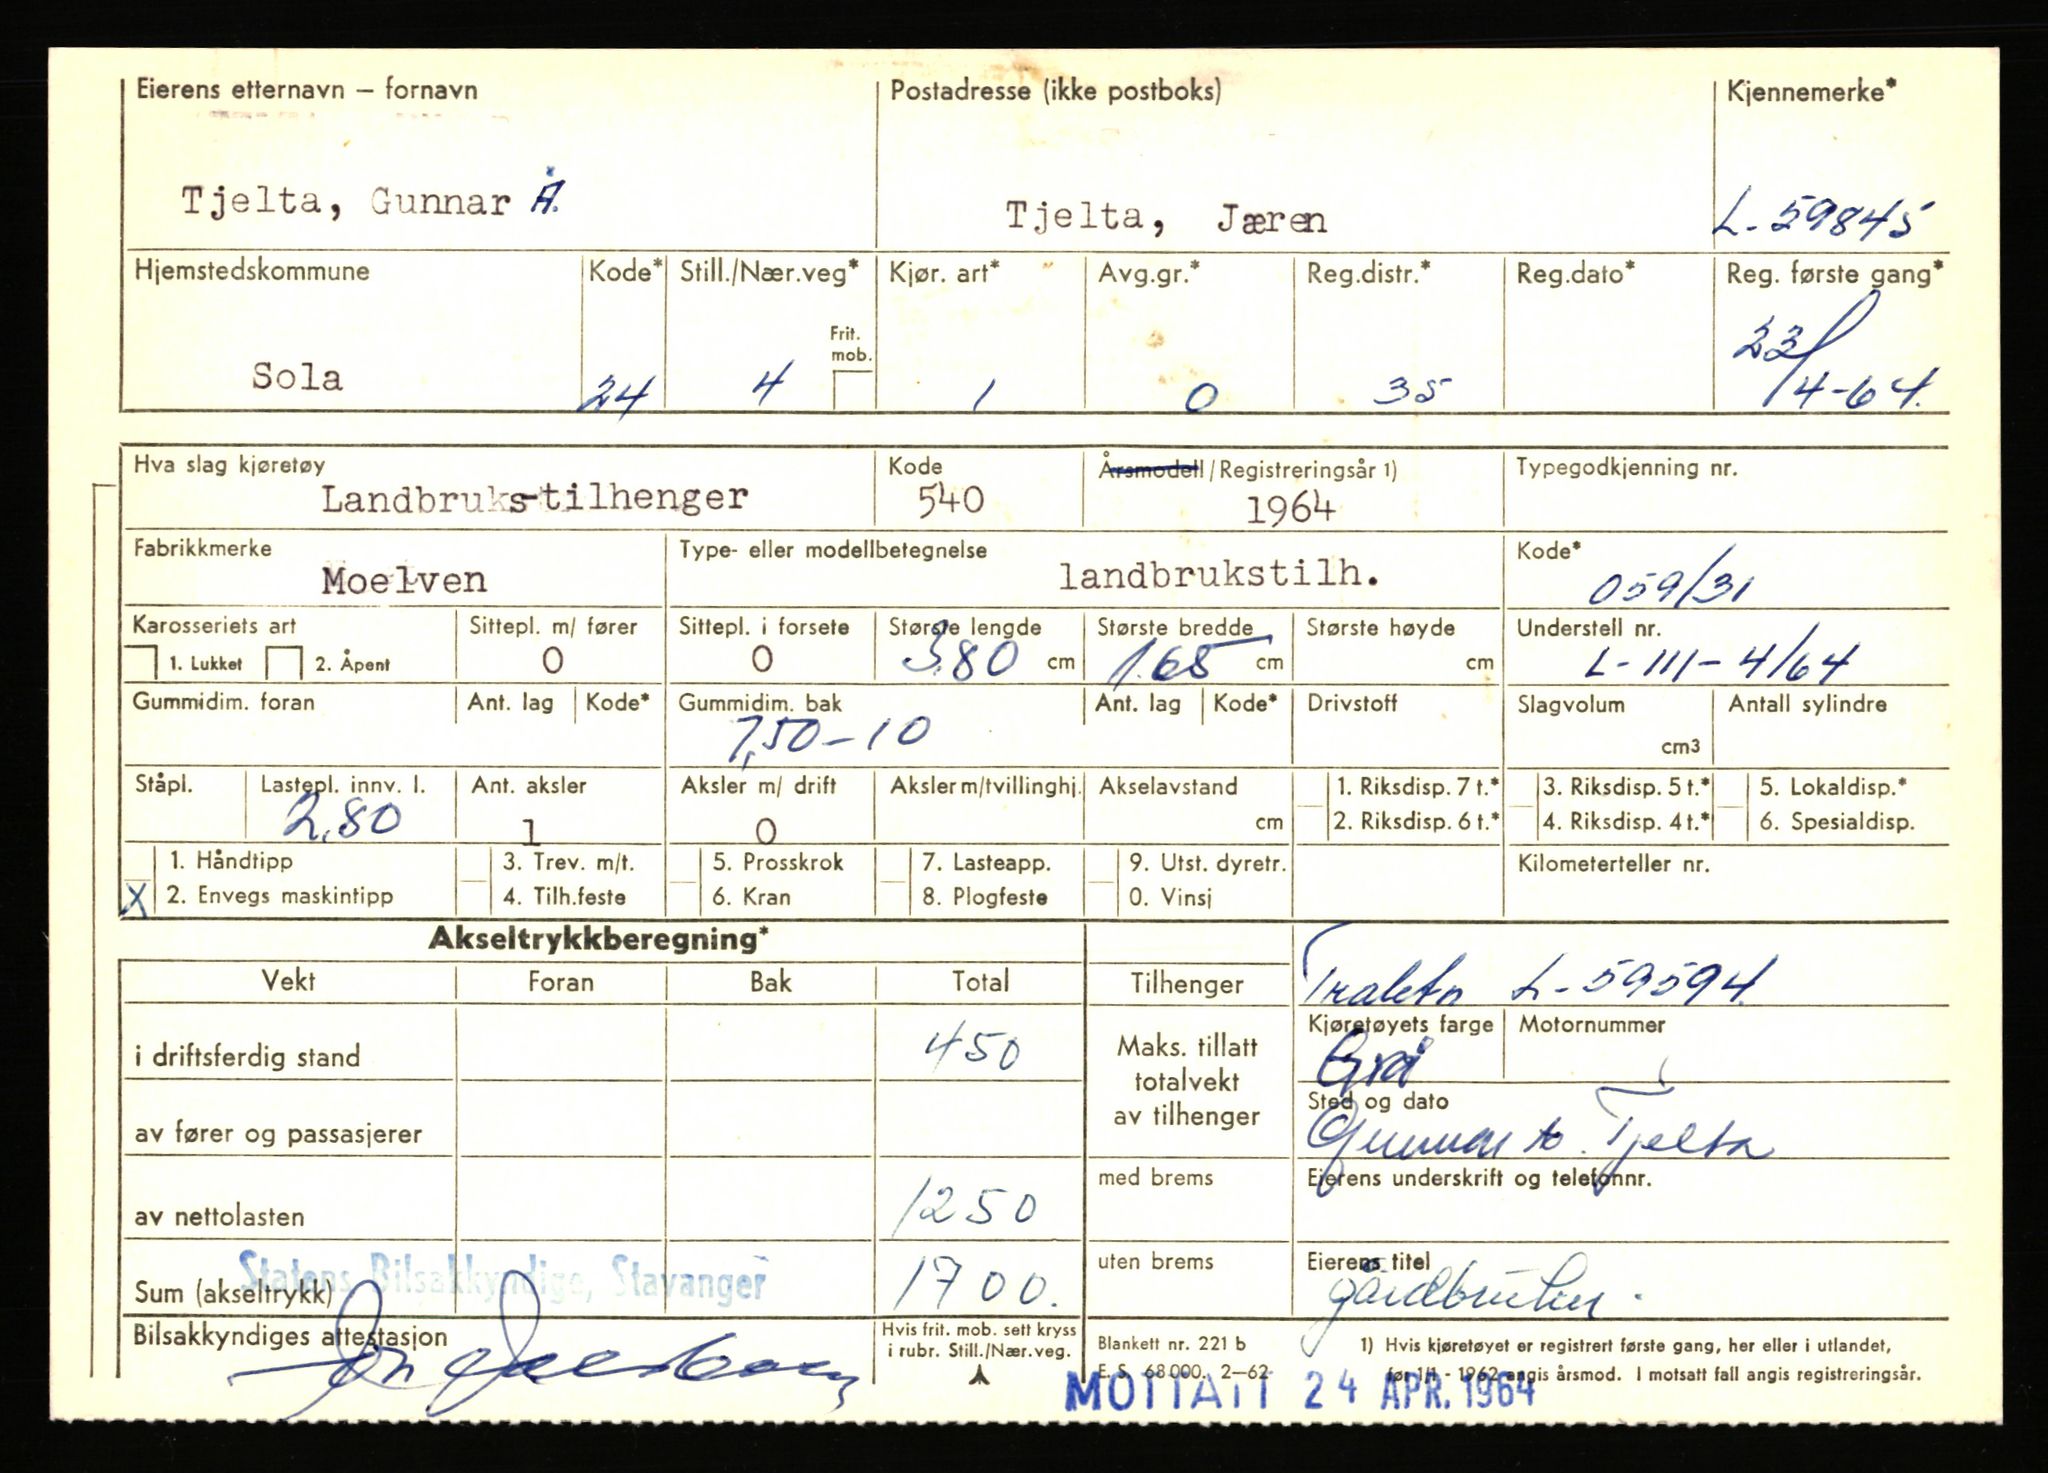 Eierens etternavn – fornavn Postadresse (ikke postboks) Kjennemerke*
Tjelta, Gunnar Å. Tjelta, Jæren L-59845
Hjemstedskommune Kode* Still./Nær.veg* Kjør. art* Avg.gr.* Reg.distr.* Reg.dato* Reg. første gang*
Frit. mob.
Sola 24 4 1 0 35 23/4-64.
Hva slag kjøretøy Kode Årsmodell/Registreringsår 1) Typegodkjenning nr.
Landbruks-tilhenger 540 1964
Fabrikkmerke Type- eller modellbetegnelse Kode*
Moelven landbrukstilh. 059/31
Karosseriets art Sittepl. m/ fører Sittepl. i forsete Største lengde Største bredde Største høyde Understell nr.
1. Lukket 2. Åpent 0 0 3.80 cm 1.65 cm cm L-111-4/64
Gummidim. foran Ant. lag Kode* Gummidim. bak Ant. lag Kode* Drivstoff Slagvolum Antall sylindre
7,50-10 cm3
Ståpl. Lastepl. innv. l. Ant. aksler Aksler m/ drift Aksler m/tvillinghj. Akselavstand 1. Riksdisp. 7 t.* 3. Riksdisp. 5 t.* 5. Lokaldisp.*
2,80 1 0 cm 2. Riksdisp. 6 t.* 4. Riksdisp. 4 t.* 6. Spesialdisp.
1. Håndtipp 3. Trev. m/t. 5. Prosskrok 7. Lasteapp. 9. Utst. dyretr. Kilometerteller nr.
X 2. Envegs maskintipp 4. Tilh.feste 6. Kran 8. Plogfeste 0. Vinsj
Akseltrykkberegning*
Vekt Foran Bak Total Tilhenger Traktor L-59594.
Kjøretøyets farge Motornummer
i driftsferdig stand 450 Maks. tillatt totalvekt av tilhenger Grå
Sted og dato
av fører og passasjerer Gunnar Å. Tjelta
med brems Eierens underskrift og telefonnr.
av nettolasten 1250
uten brems Eierens titel
Statens Bilsakkyndige, Stavanger
Sum (akseltrykk) 1700. gårdbruker.
Bilsakkyndiges attestasjon Hvis frit. mob. sett kryss i rubr. Still./Nær.veg. Blankett nr. 221 b 1) Hvis kjøretøyet er registrert første gang, her eller i utlandet,
E. S. 68000. 2-62 før 1/1 - 1962 angis årsmod. I motsatt fall angis registreringsår.
MOTTATT 24 APR. 1964